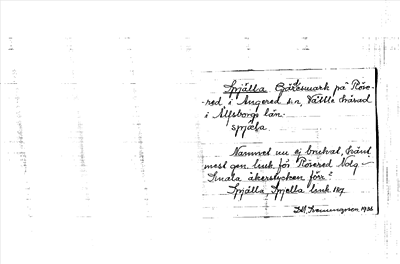 Spjälla Gärdesmark på Röse-
red i Angered sn, Vättle härad
i Älfsborgs län.
spjäla.
Namnet nu ej brukat, känt
mest gen. luk. för Rösered Nolg.
Smala åkerstycken förr?
Spjälla, Spjella luk. 1
1926